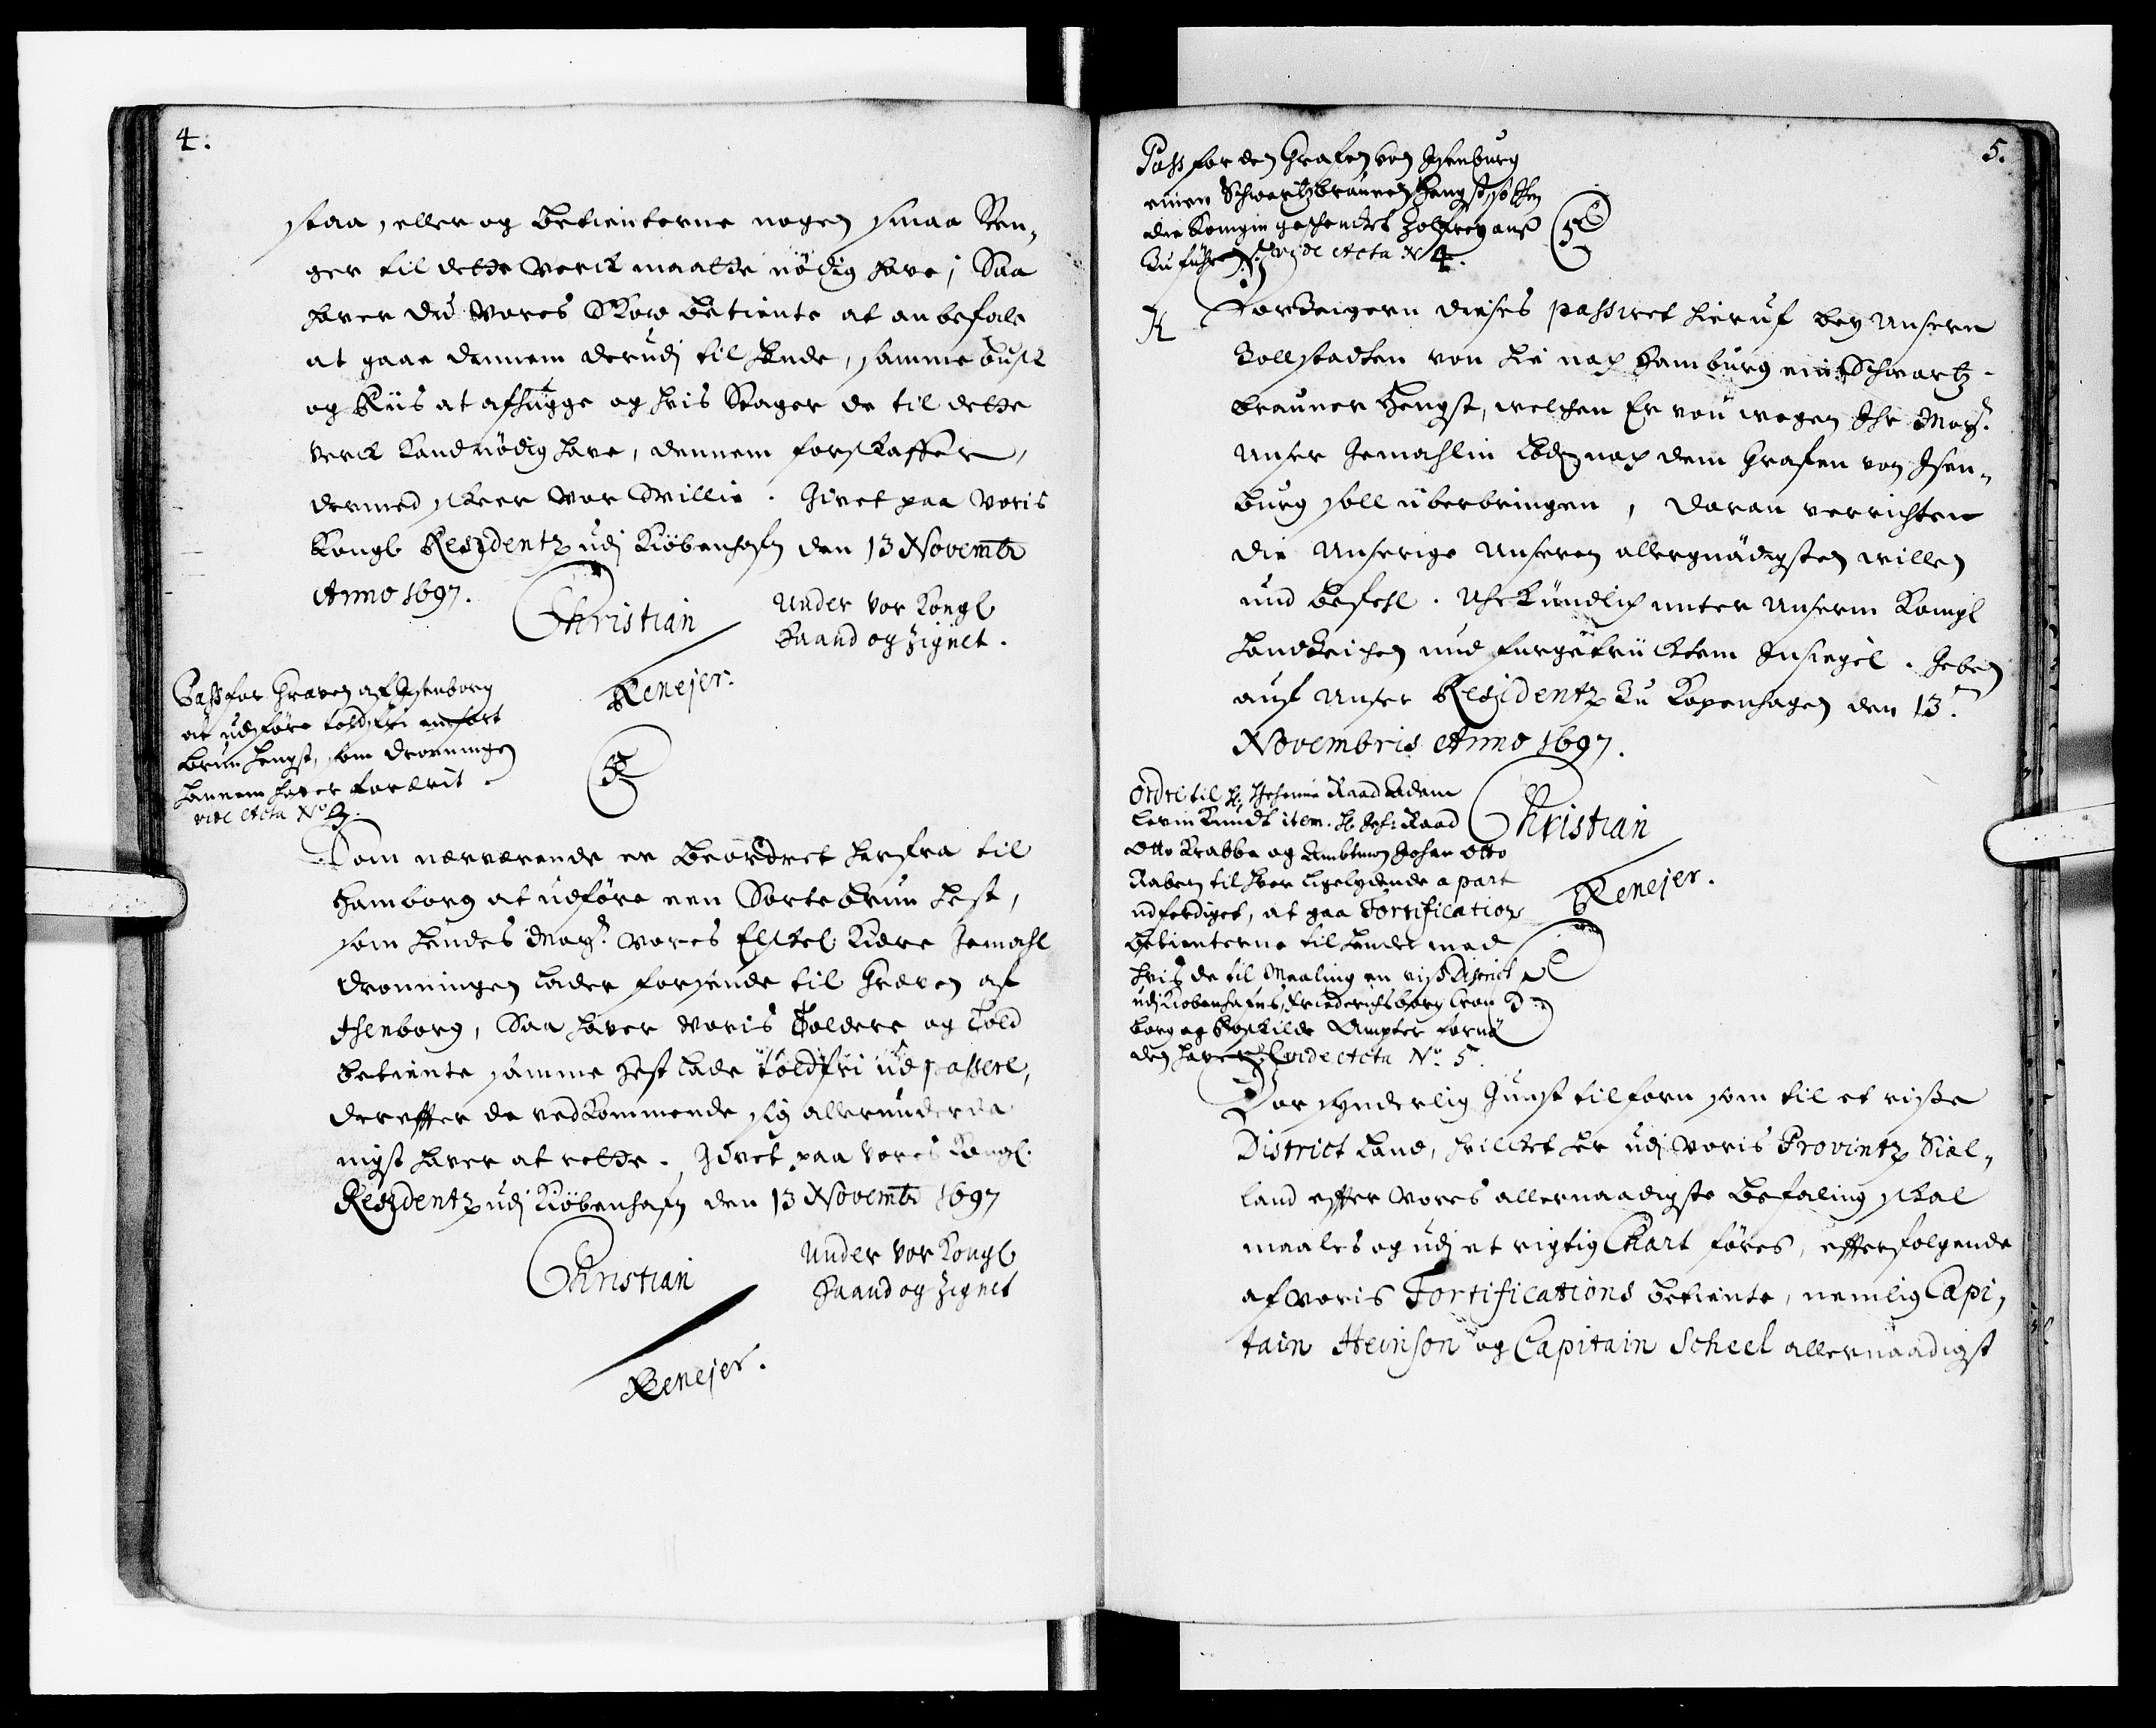 4.
staa, eller og betienterne nogen smaa Sten,
ger til dette Verck maatte nödig have; Saa
haver du Vores Skow betiente at anbefale
at gaae dennem derudj til hende, samme busk
og Riis at afhugge og hvis Stager de til dette
Verck kand nödig have, dennem forskaffer,
dermed skeer Vor Villie. Givet paa Voris
Kongl Residentz udj Kiöbenhafn den 13 Novembr
Anno 1697.
Christian
Under Vor Kongl
Haand og Zignet.
Reuejer.
Pass for Graven af Isenborg
at udföre toldfri en sort
brun hengst, som Dronningen
hannem haver foræret
vide Acta No 3.
Som nærværende er beordret herfra til
Hamborg at udföre een Sortebrun hest,
som hendes Mayt. Vores Elskel: Kiære Gemahl
Dronningen lader forsende til Græven af
Isenborg, Saa haver Voris Toldere og Told
betiente samme hest lade toldfri ud passere,
derefter de vedkommende sig allerunderda
nigst haver at rette. Givet paa Vores Kongl.
Residentz udj Kiöbenhafn den 13 Novembr 1697
Christian
Under Vor Kongl
Haand og Zignet
Reuejer.
5.
Pass for den Grafen von Isenburg
einen Schwartzbraunen Hengst, so Ihm
die Königin geschencket Zolfrey aus
zu führen. vide Acta No 4.
Vorzeigern dieses passiret hierauf bey Unsern
Zollstadten von hie nach Hamburg ein Schwartz-
brauner Hengst, welchen Er von wegen Ihr Mayt.
Unser Gemahlin Lbdn nach dem Grafen von Isen,
burg soll überbringen, daran verrichten
die Unserige Unseren allergnädigsten willen
und Befehl. Uhrkündlich unter Unserm Königl
Handzeichen und furgetrücktem Insiegel. Geben
auf Unser Residentz zu Kopenhagen den 13.
Novembris Anno 1697.
Christian
Reuejer.
Ordre til H. Geheime Raad Adam
Levin Knudt item H. Geh: Raad
Otto Krabbe og Ambtman Johan Otto
Raben til hver ligelydende a part
udferdiget, at gaa Fortification
betienterne til hende med
hvis de til Maaling en viss District
udj Kiøbenhafns, Friderichsborg Cron
borg og Roskilde Ampter fornö
den haver. vide Acta No. 5.
Vor synderlig Gunst tilforn som til et visse
District Land, hvilcket her udj Voris Provintz Siæl,
land efter Vores allernaadigste befaling skal
maales og udj et rigtig Chart föres, efterfölgende
af Voris Fortifications betiente, nemlig Capi,
tain Heinson og Capitain Scheel allernaadigst